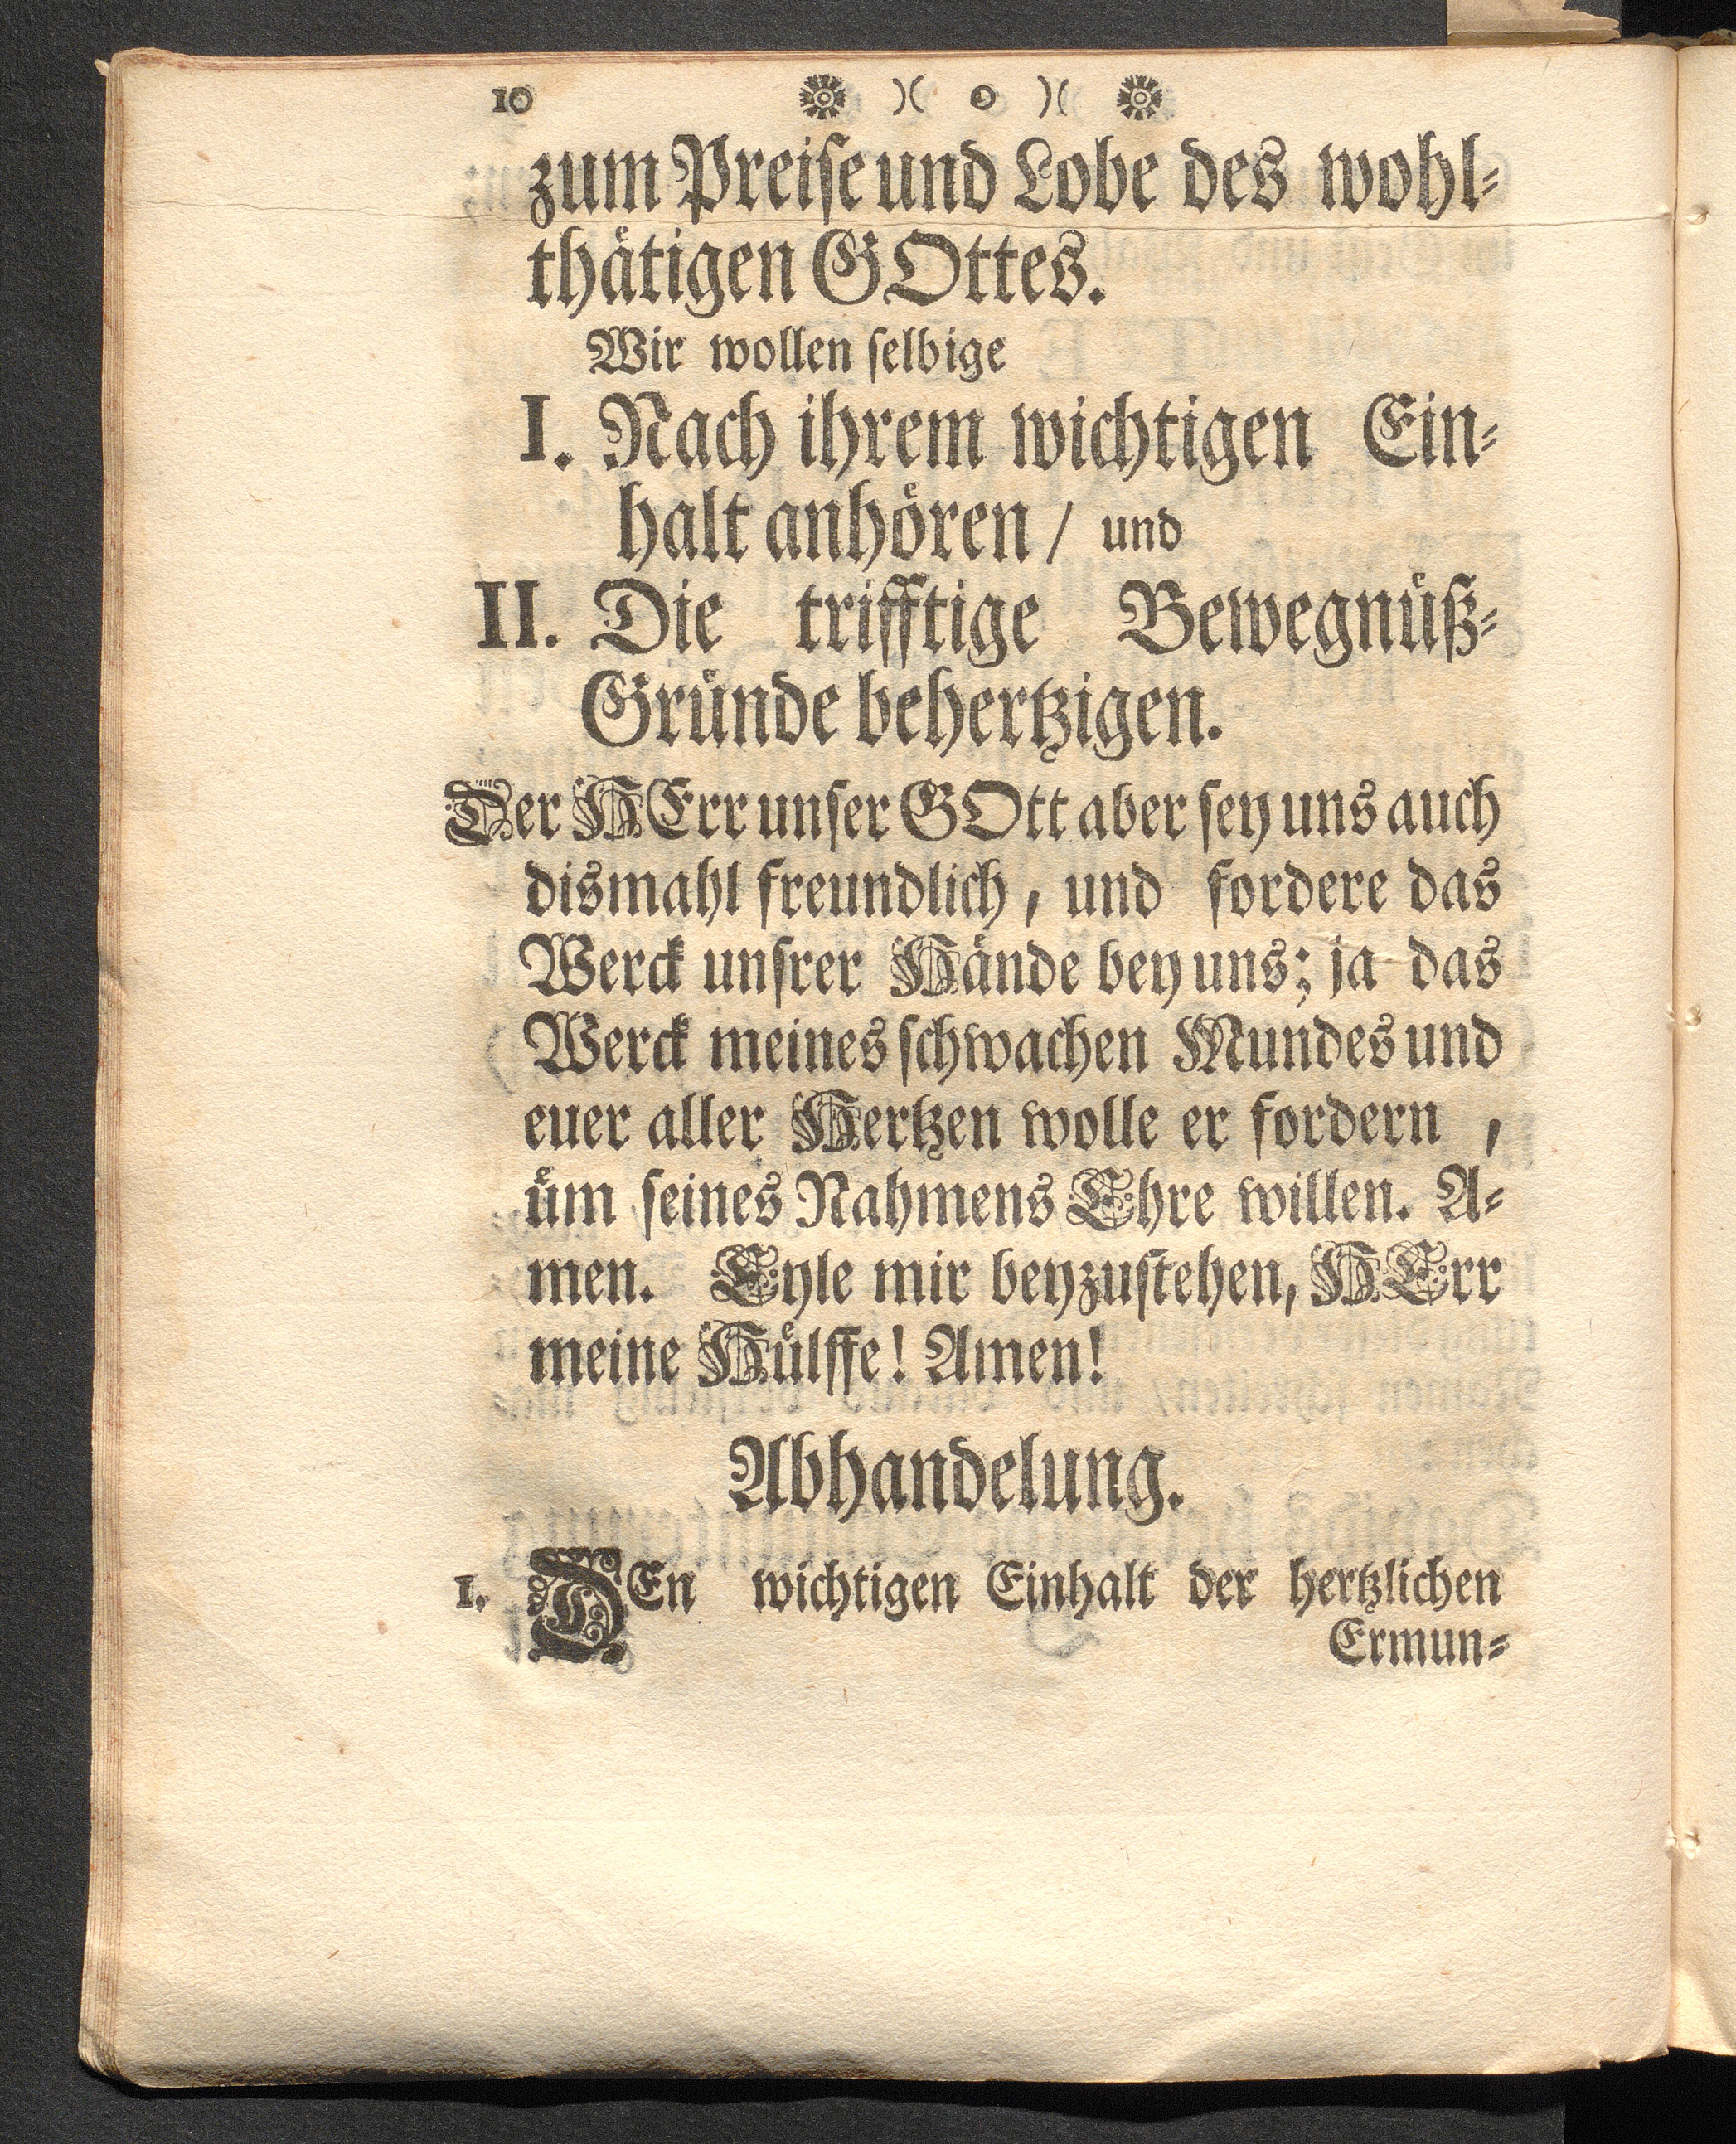 10 )( o )(
zum Preiſe und Lobe des wohl⸗
thaͤtigen GOttes.
Wir wollen ſelbige
I. Nach ihrem wichtigen Ein⸗
halt anhoͤren / und
II. Die trifftige Bewegnuͤß⸗
Gruͤnde behertzigen.
Der HErr unſer GOtt aber ſey uns auch
dismahl freundlich, und fordere das
Werck unſrer Haͤnde bey uns; ja das
Werck meines ſchwachen Mundes und
euer aller Hertzen wolle er fordern ,
uͤm ſeines Nahmens Ehre willen. A⸗
men. Eyle mir beyzuſtehen, HErr
meine Huͤlffe! Amen!
Abhandelung.
1. DEn wichtigen Einhalt der hertzlichen
Ermun⸗